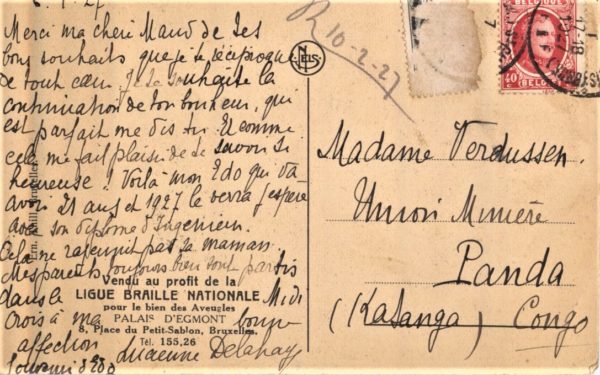 6.1.27
Merci ma chérie Maud de tes
bons souhaits que je te réciproque
de tout cœur. Je te souhaite la
continuation de ton bonheur, qui
est parfait me dis tu. Et comme
cela me fait plaisir de te savoir si
heureuse! Voilà mon Edo qui va
avoir 21 ans et 1927 le verra j'espère
avec son diplôme d'Ingénieur.
Cela ne rajeunit pas sa maman.
Mes parents toujours bien sont partis
dans le Midi
Crois à ma bonne
affection Lucienne Delahaye
Souvenir d'Edo
Vendu au profit de la
LIGUE BRAILLE NATIONALE
pour le bien des Aveugles
PALAIS D'EGMONT
8, Place du Petit-Sablon, Bruxelles.
Tél. 155,26
Ern. Thill, Bruxelles
NELS
R 10-2-27
40 c
BELGIQUE
Madame Verdussen.
Union Minière
Panda
(Katanga) Congo